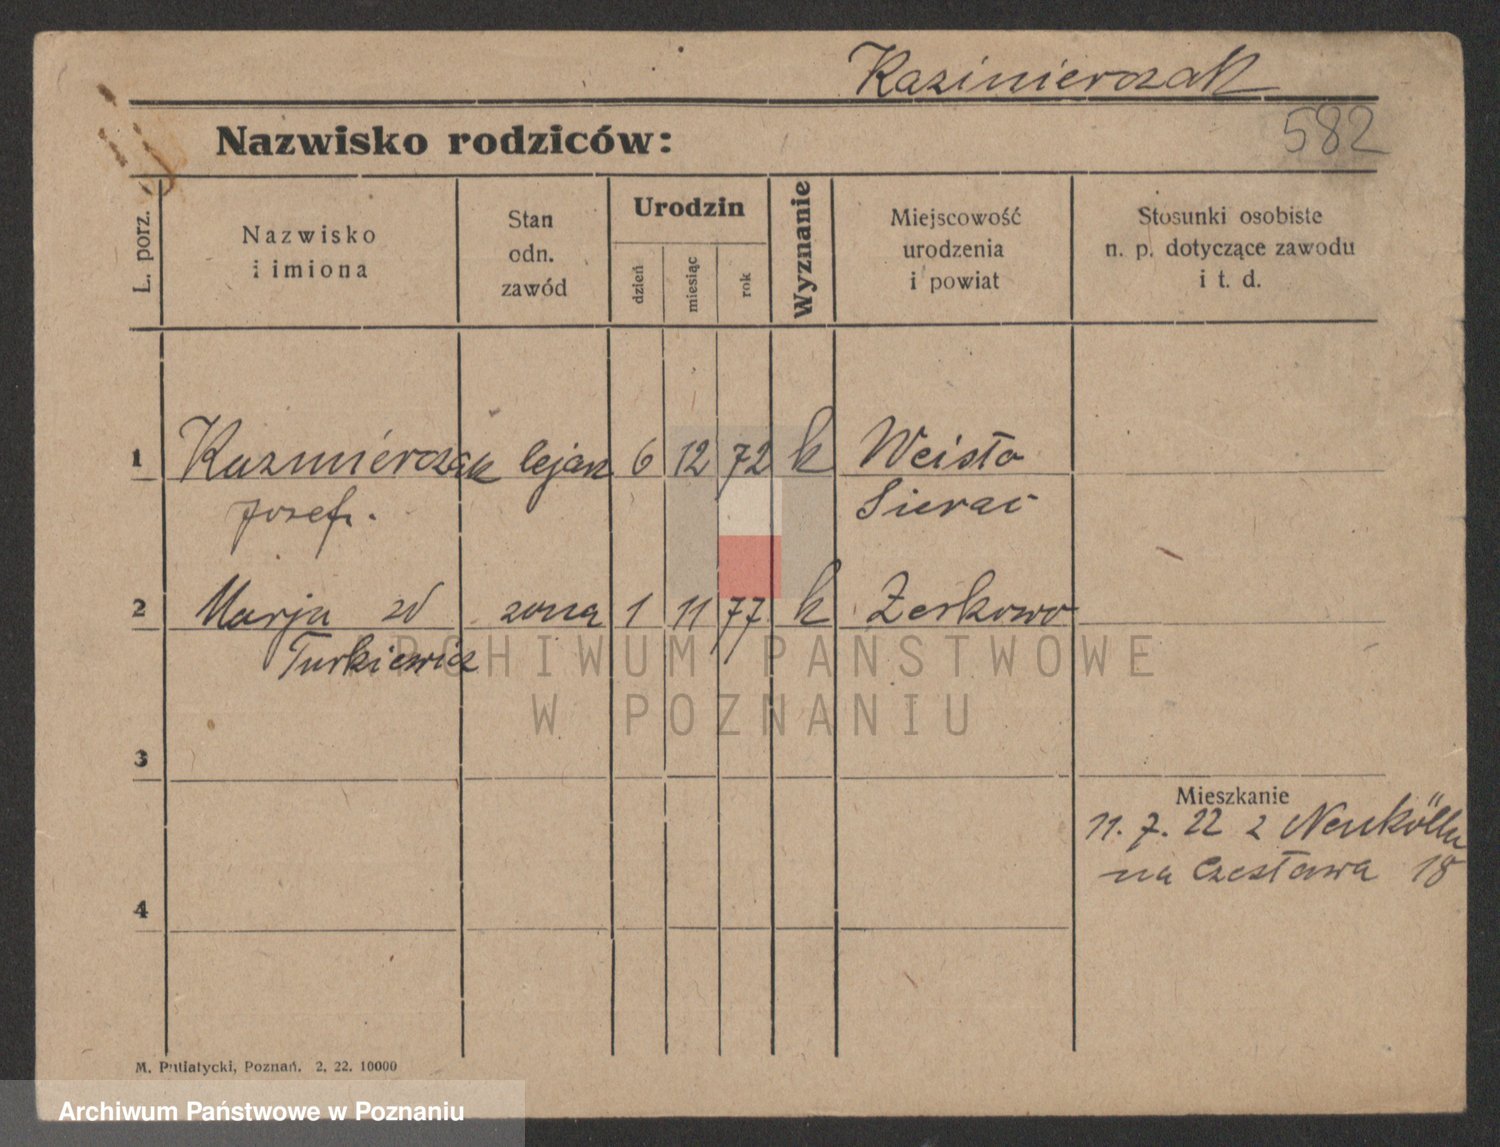 Kazimierczak
582
Nazwisko rodziców:
L. porz.
Nazwisko
i imiona
Stan
odn.
zawód
Urodzin
dzień
miesiąc
rok
Wyznanie
Miejscowość
urodzenia
i powiat
Stosunki osobiste
n. p. dotyczące zawodu
i t. d.
1 Kazmierczak 6 12 72 k
Josef.
2 Marja zd zona 1 11 77 k Zerkowo
Turkiewicz
3
Mieszkanie
11. 7. 22 z Neukölln
na Czesława 18
4
M. Putiatycki, Poznań. 2. 22. 10000
ARCHIWUM PAŃSTWOWE
W POZNANIU
Archiwum Państwowe w Poznaniu